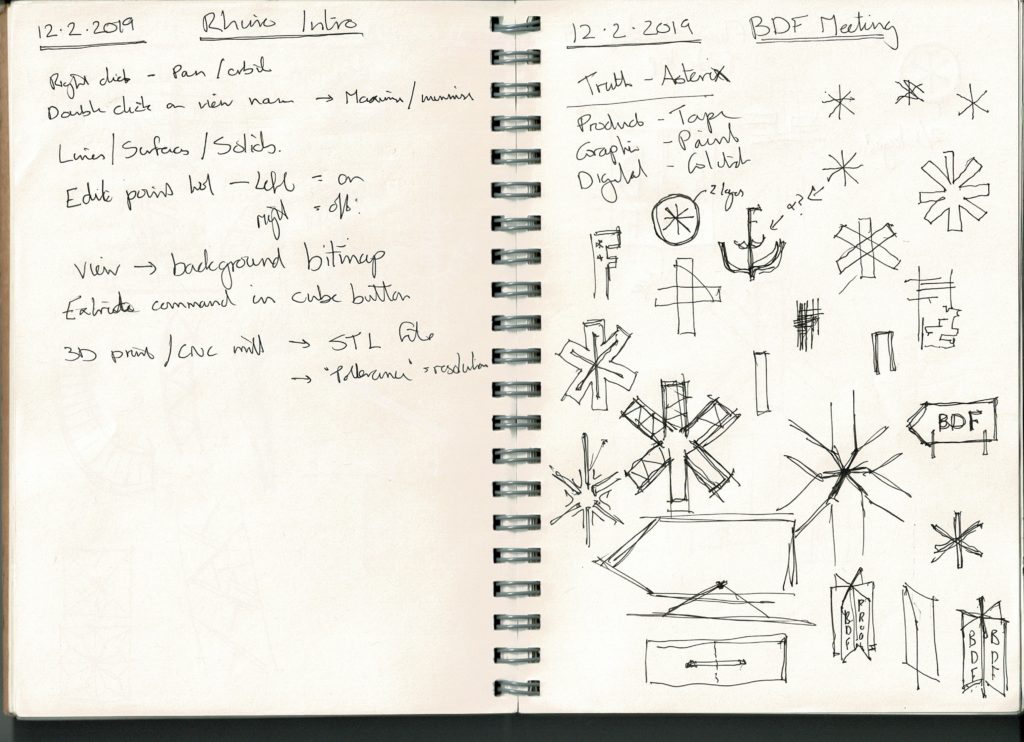 12.2.2019 Rhino Intro
Right click - Pan / orbit
Double click on view name → Maximise / minimise
Lines / Surfaces / Solids.
Edit points tool - Left = on
right = off.
View → background bitmap
Extrude command in cube button
3D print / CNC mill → STL file
→ "Tollerance" = resolution
12.2.2019 BDF Meeting
Truth - Asterix
Product - Tape
Graphic - Paint
Digital -
2 legs
or?
F
BDF
BDF
BDF
BDF